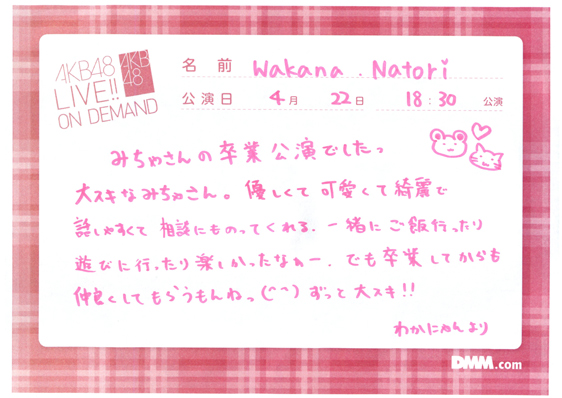 AKB48
LIVE!!
ON DEMAND
AKB
48
名 前 Wakana . Natori
公演日 4月 22日 18:30 公演
みちゃさんの卒業公演でしたっ
大スキなみちゃさん。優しくて可愛くて綺麗で
話しやすくて相談にものってくれる. 一緒にご飯行ったり
遊びに行ったり楽しかったなぁー. でも卒業してからも
仲良くしてもらうもんねっ(ᵔᵔ) ずっと大スキ!!
わかにゃんより
DMM.com